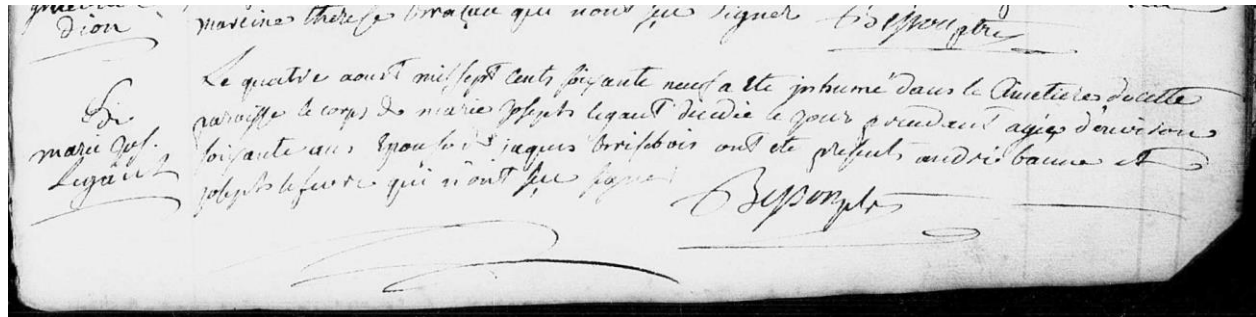 Dion
marline therese qui n'ont seu signer Besson ptre
S de
marie Jos.
Legault
Le quatre aoust mil sept cents soixante neuf a ete jnhumé dans le Cimetiere de cette
paroisse le corps de marie Joseph legault décédée le jour précédant agée d'environ
soixante ans Epouse de jaques brisebois ont été présents andré banne et
joseph lefevre qui n'ont seu signer
Besson ptre